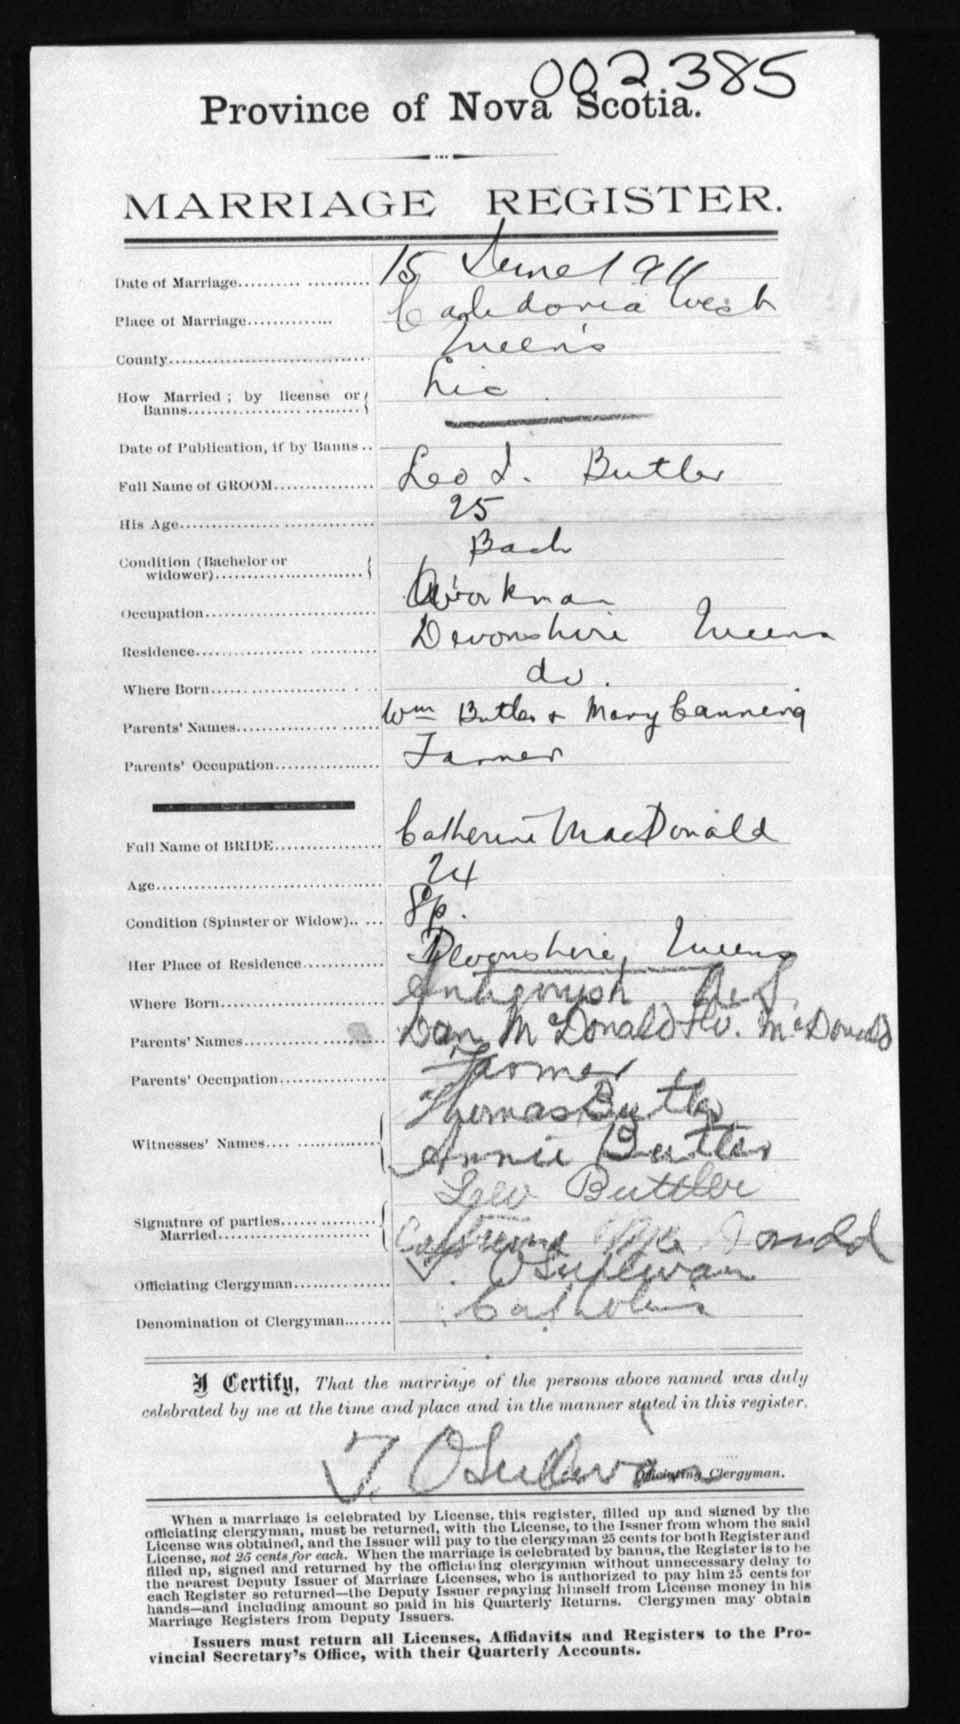 002385
Province of Nova Scotia.
MARRIAGE REGISTER.
Date of Marriage 15 June 1911
Place of Marriage Caledonia West
County Queen's
How Married ; by license or Banns Lic.
Date of Publication, if by Banns
Full Name of GROOM Leo J. Butler
His Age 25
Condition (Bachelor or widower) Bach
Occupation Workman
Residence Devonshire Queens
Where Born do.
Parents' Names Wm Butler & Mary Canning
Parents' Occupation Farmer
Full Name of BRIDE Catherine MacDonald
Age 24
Condition (Spinster or Widow) Sp.
Her Place of Residence Devonshire, Queens
Where Born Antigonish
Parents' Names Dan McDonald McDonald
Parents' Occupation Farmer
Witnesses' Names Thomas Butler
Annie Butler
Signature of parties Married Leo Buttler
Donald
Officiating Clergyman O'Sullivan
Denomination of Clergyman Catholic
I Certify, That the marriage of the persons above named was duly
celebrated by me at the time and place and in the manner stated in this register.
T. O'Sullivan
Officiating Clergyman.
When a marriage is celebrated by License, this register, filled up and signed by the
officiating clergyman, must be returned, with the License, to the Issuer from whom the said
License was obtained, and the Issuer will pay to the clergyman 25 cents for both Register and
License, not 25 cents for each. When the marriage is celebrated by banns, the Register is to be
filled up, signed and returned by the officiating clergyman without unnecessary delay to
the nearest Deputy Issuer of Marriage Licenses, who is authorized to pay him 25 cents for
each Register so returned—the Deputy Issuer repaying himself from License money in his
hands—and including amount so paid in his Quarterly Returns. Clergymen may obtain
Marriage Registers from Deputy Issuers.
Issuers must return all Licenses, Affidavits and Registers to the Pro-
vincial Secretary's Office, with their Quarterly Accounts.